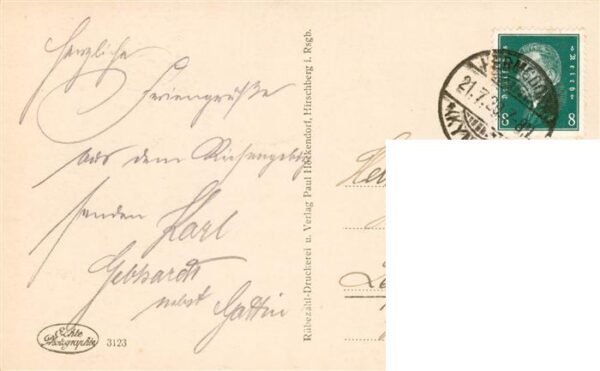 Herzliche
Feriengrüße
aus dem Riesengebirge
senden Karl
Gebhardt
nebst Gattin
Echte
Photographie
3123
Rübezahl-Druckerei u. Verlag Paul Höckendorf, Hirschberg i. Rsgb.
Deutsches Reich
8 8
21.7.28